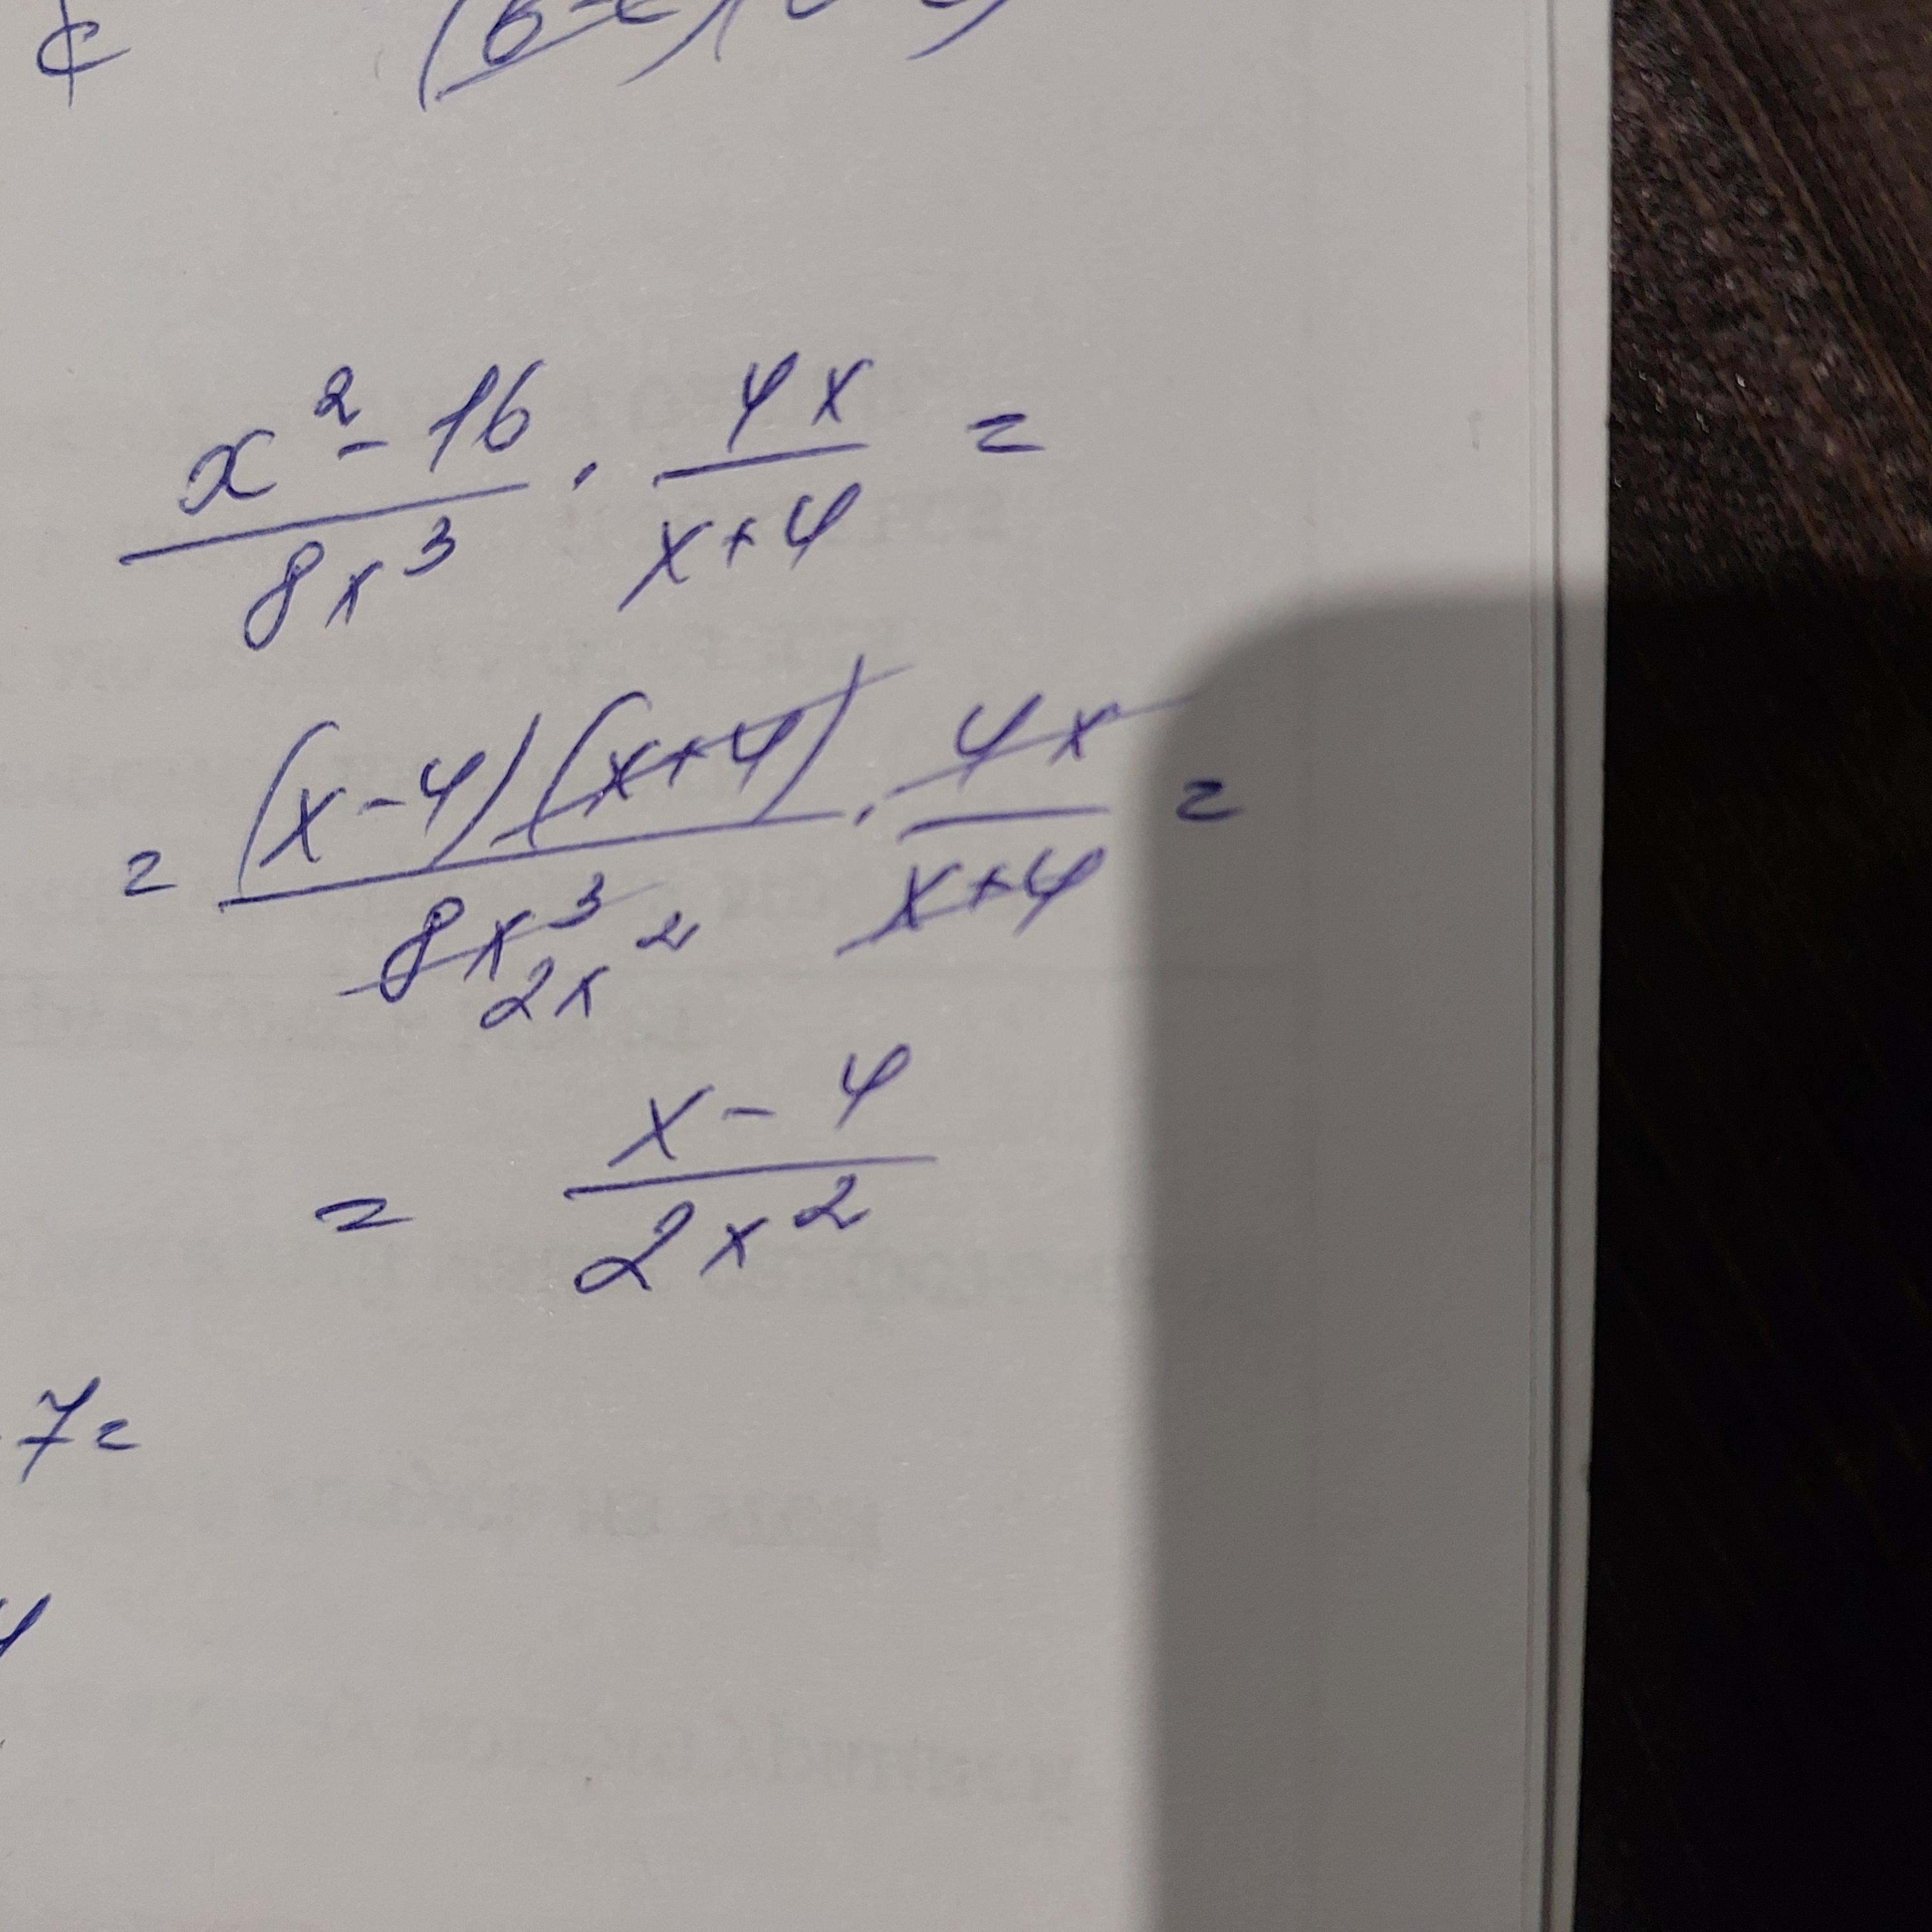 x² - 16 / 8x³ · 4x / x+4 =
= (x-4)(x+4) / 8x³ · 4x / x+4 =
2x²
= x - 4 / 2x²
7=